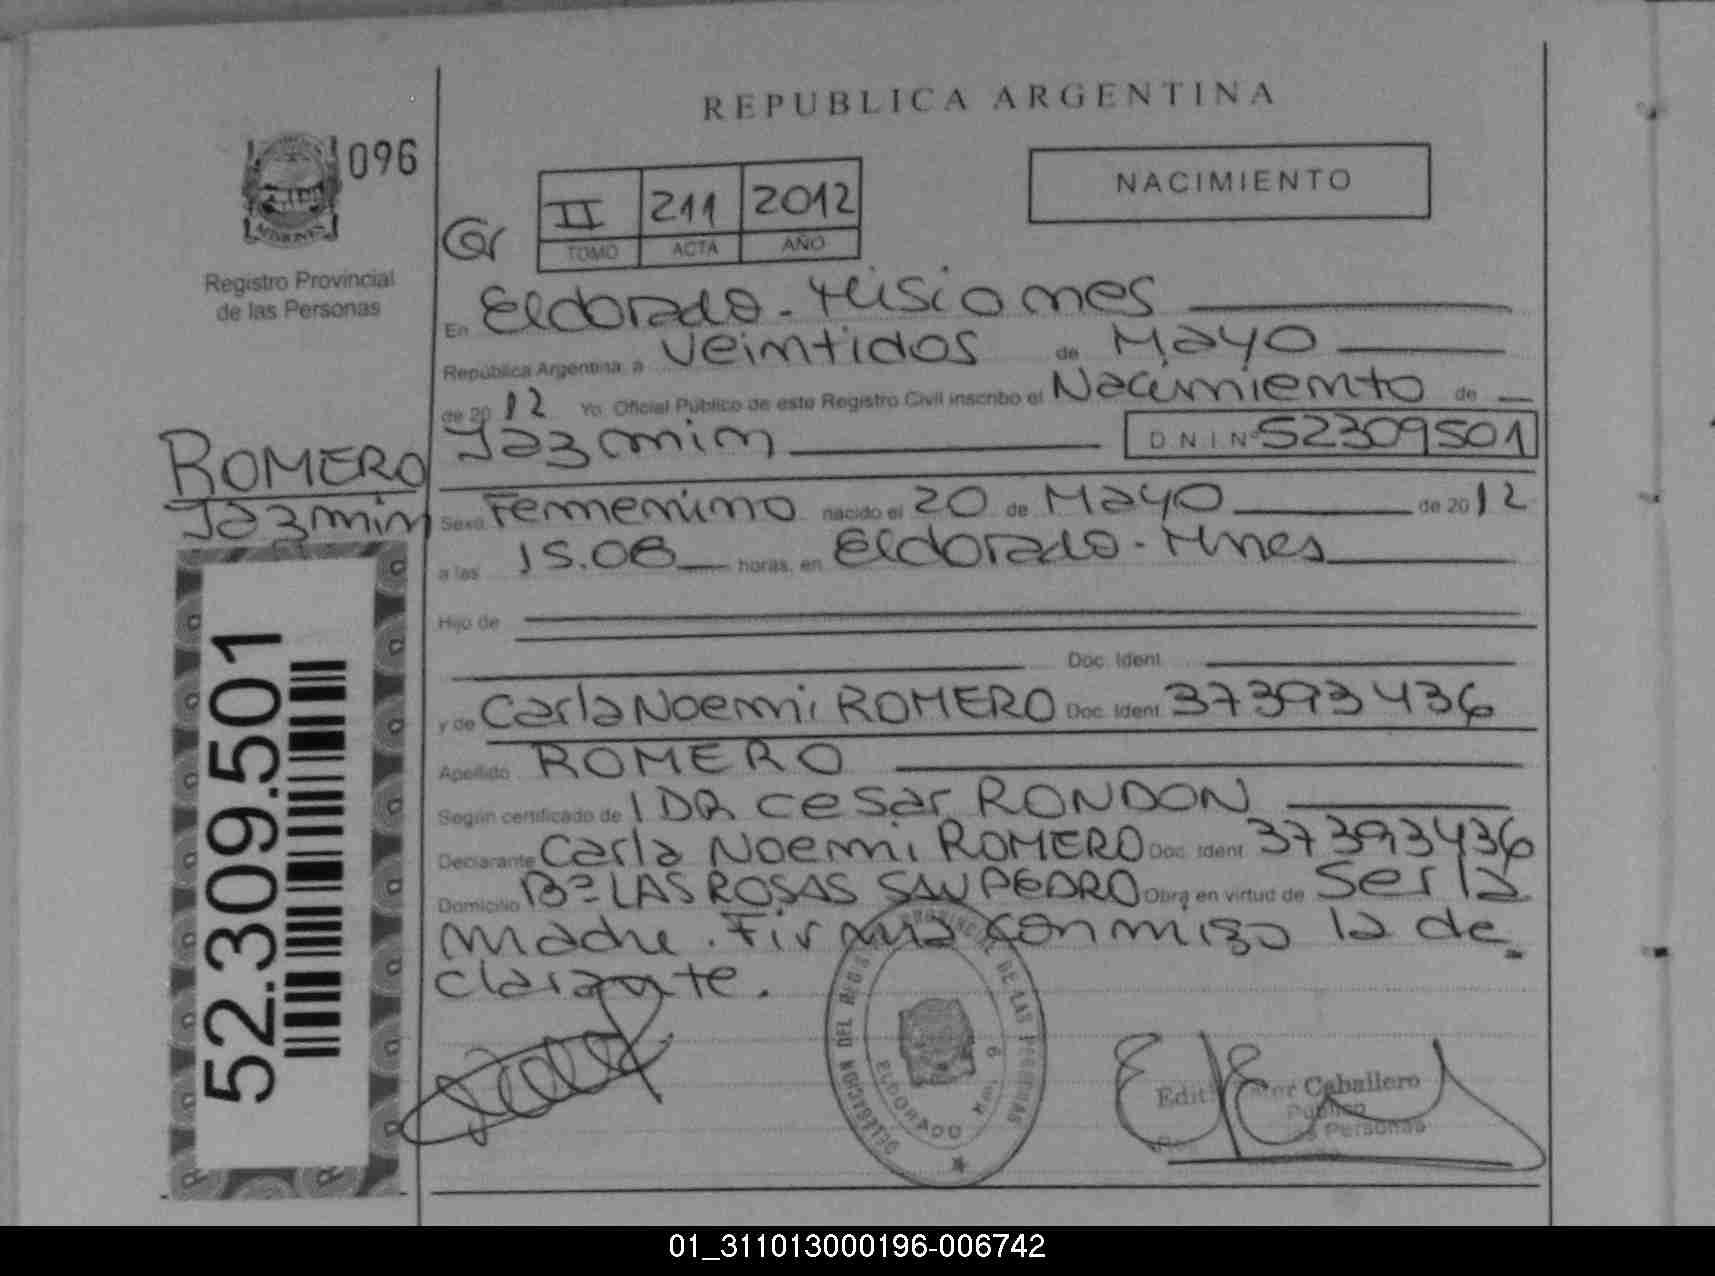 REPUBLICA ARGENTINA
096
NACIMIENTO
II 211 2012
TOMO ACTA AÑO
MISIONES
Registro Provincial
de las Personas
En Eldorado - Misiones
República Argentina, a veintidos de Mayo
de 2012 Yo, Oficial Público de este Registro Civil inscribo el Nacimiento de
Jazmin D.N.I. Nº 52309501
ROMERO
Jazmin
Sexo Femenino nacido el 20 de Mayo de 2012
a las 15.08 horas, en Eldorado - Mnes
Hijo de
Doc. Ident.
y de Carla Noemi ROMERO Doc. Ident. 37393436
Apellido ROMERO
Según certificado de DR Cesar RONDON
Declarante Carla Noemi ROMERO Doc. Ident. 37393436
Domicilio Bº LAS ROSAS SAN PEDRO Obra en virtud de Ser la
madre. Firma conmigo la de
clarante.
52.309.501
DELEGACION DEL REGISTRO PROVINCIAL DE LAS PERSONAS
ELDORADO
Caballero
Público
Personas
01_311013000196-006742